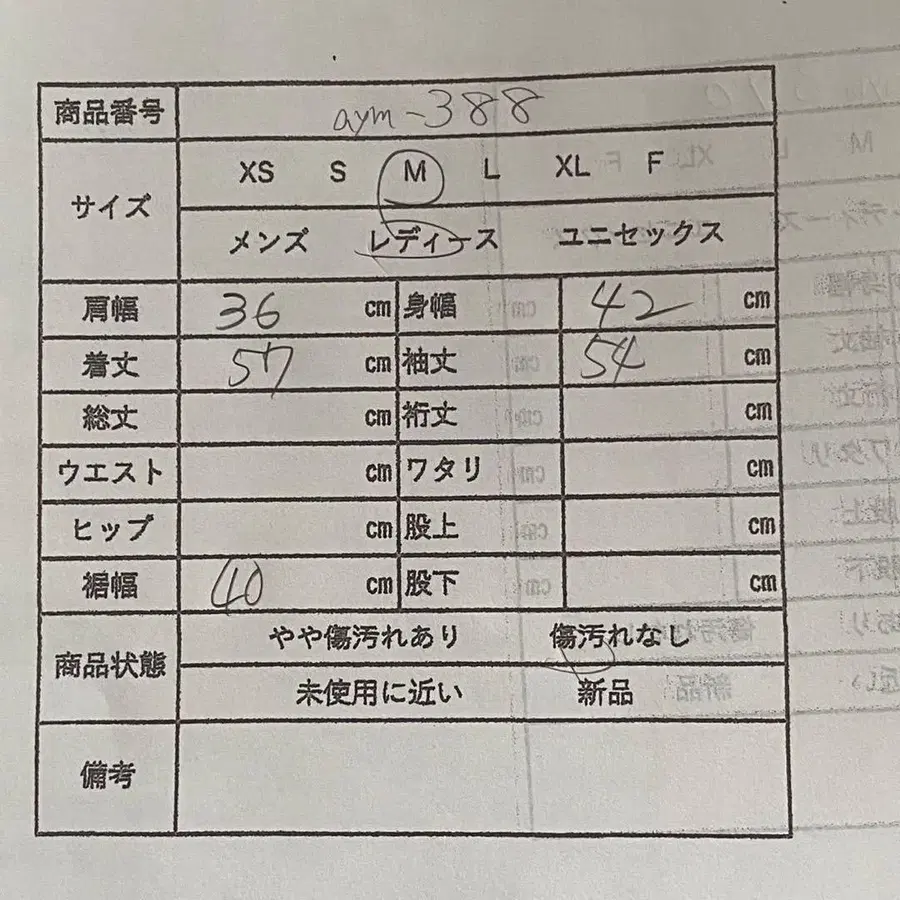 商品番号 aym-388
サイズ XS S M L XL F
メンズ レディース ユニセックス
肩幅 36 cm 身幅 42 cm
着丈 57 cm 袖丈 54 cm
総丈 cm 裄丈 cm
ウエスト cm ワタリ cm
ヒップ cm 股上 cm
裾幅 40 cm 股下 cm
商品状態 やや傷汚れあり 傷汚れなし
未使用に近い 新品
備考